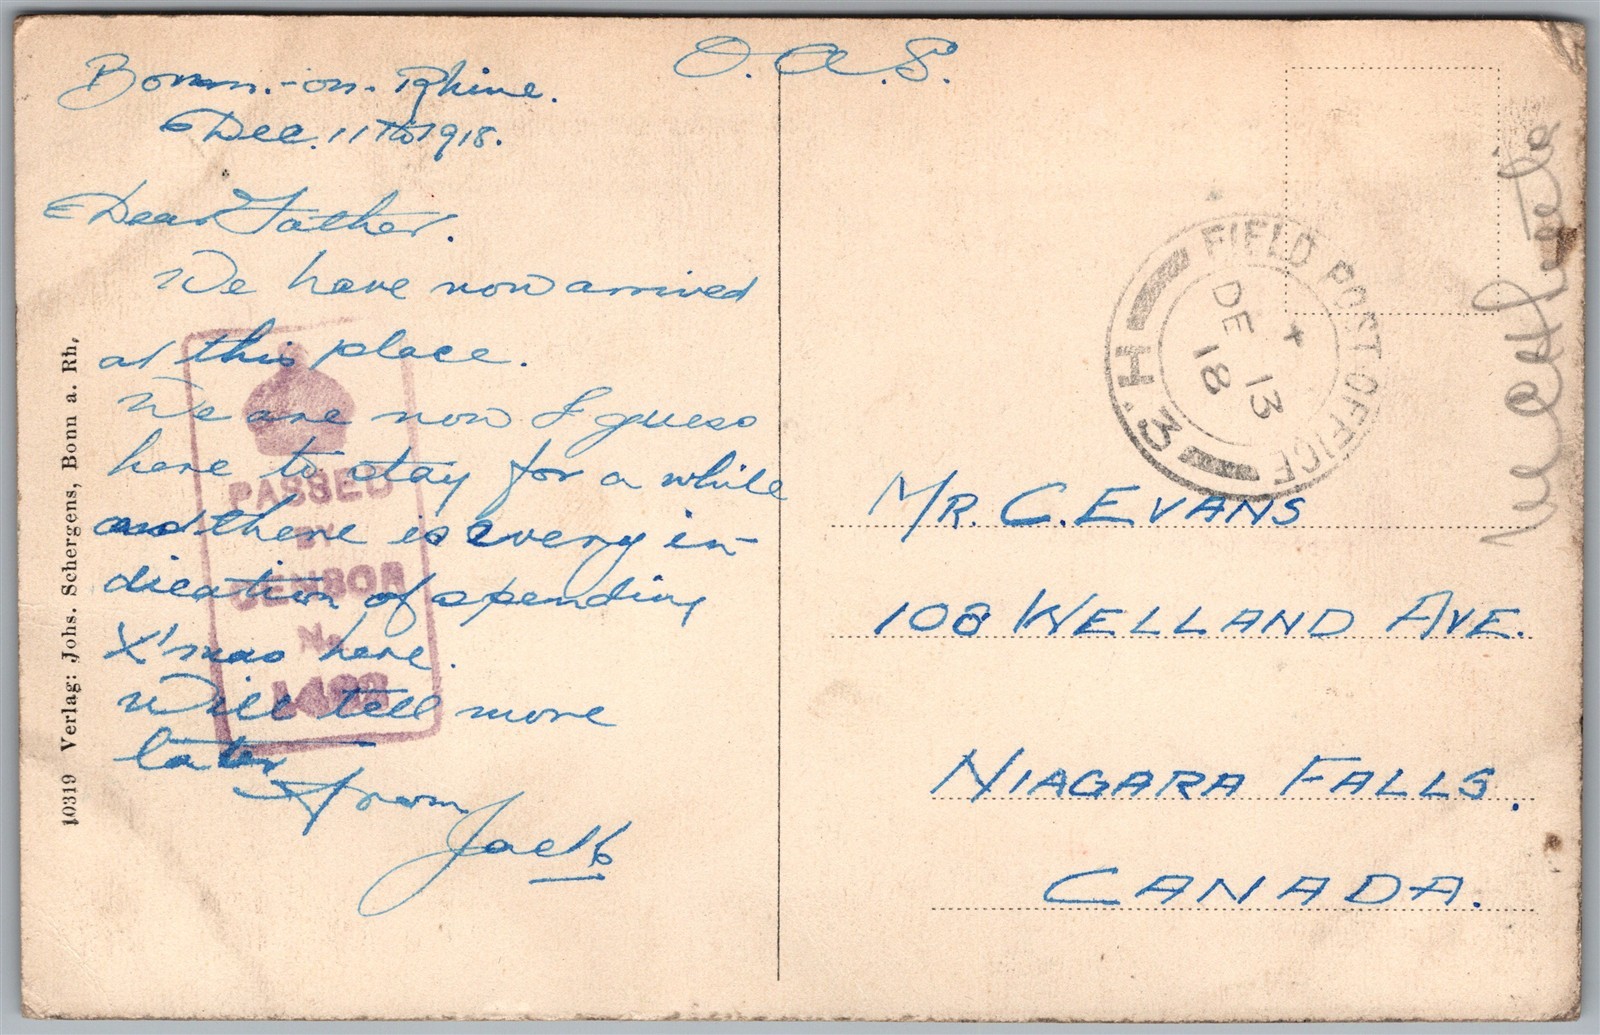 O.A.S.
Bonn.-on-Rhine.
Dec. 11th 1918.
Dear Father.
We have now arrived
at this place.
We are now I guess
here to stay for a while
and there is every in-
dication of spending
X'mas here.
Will tell more
later
From
Jack
PASSED
BY
CENSOR
No
10319 Verlag: Johs. Schergens, Bonn a. Rh.
FIELD POST OFFICE
H.3
+
DE 13
18
MR. C. EVANS
108 WELLAND AVE.
NIAGARA FALLS.
CANADA.